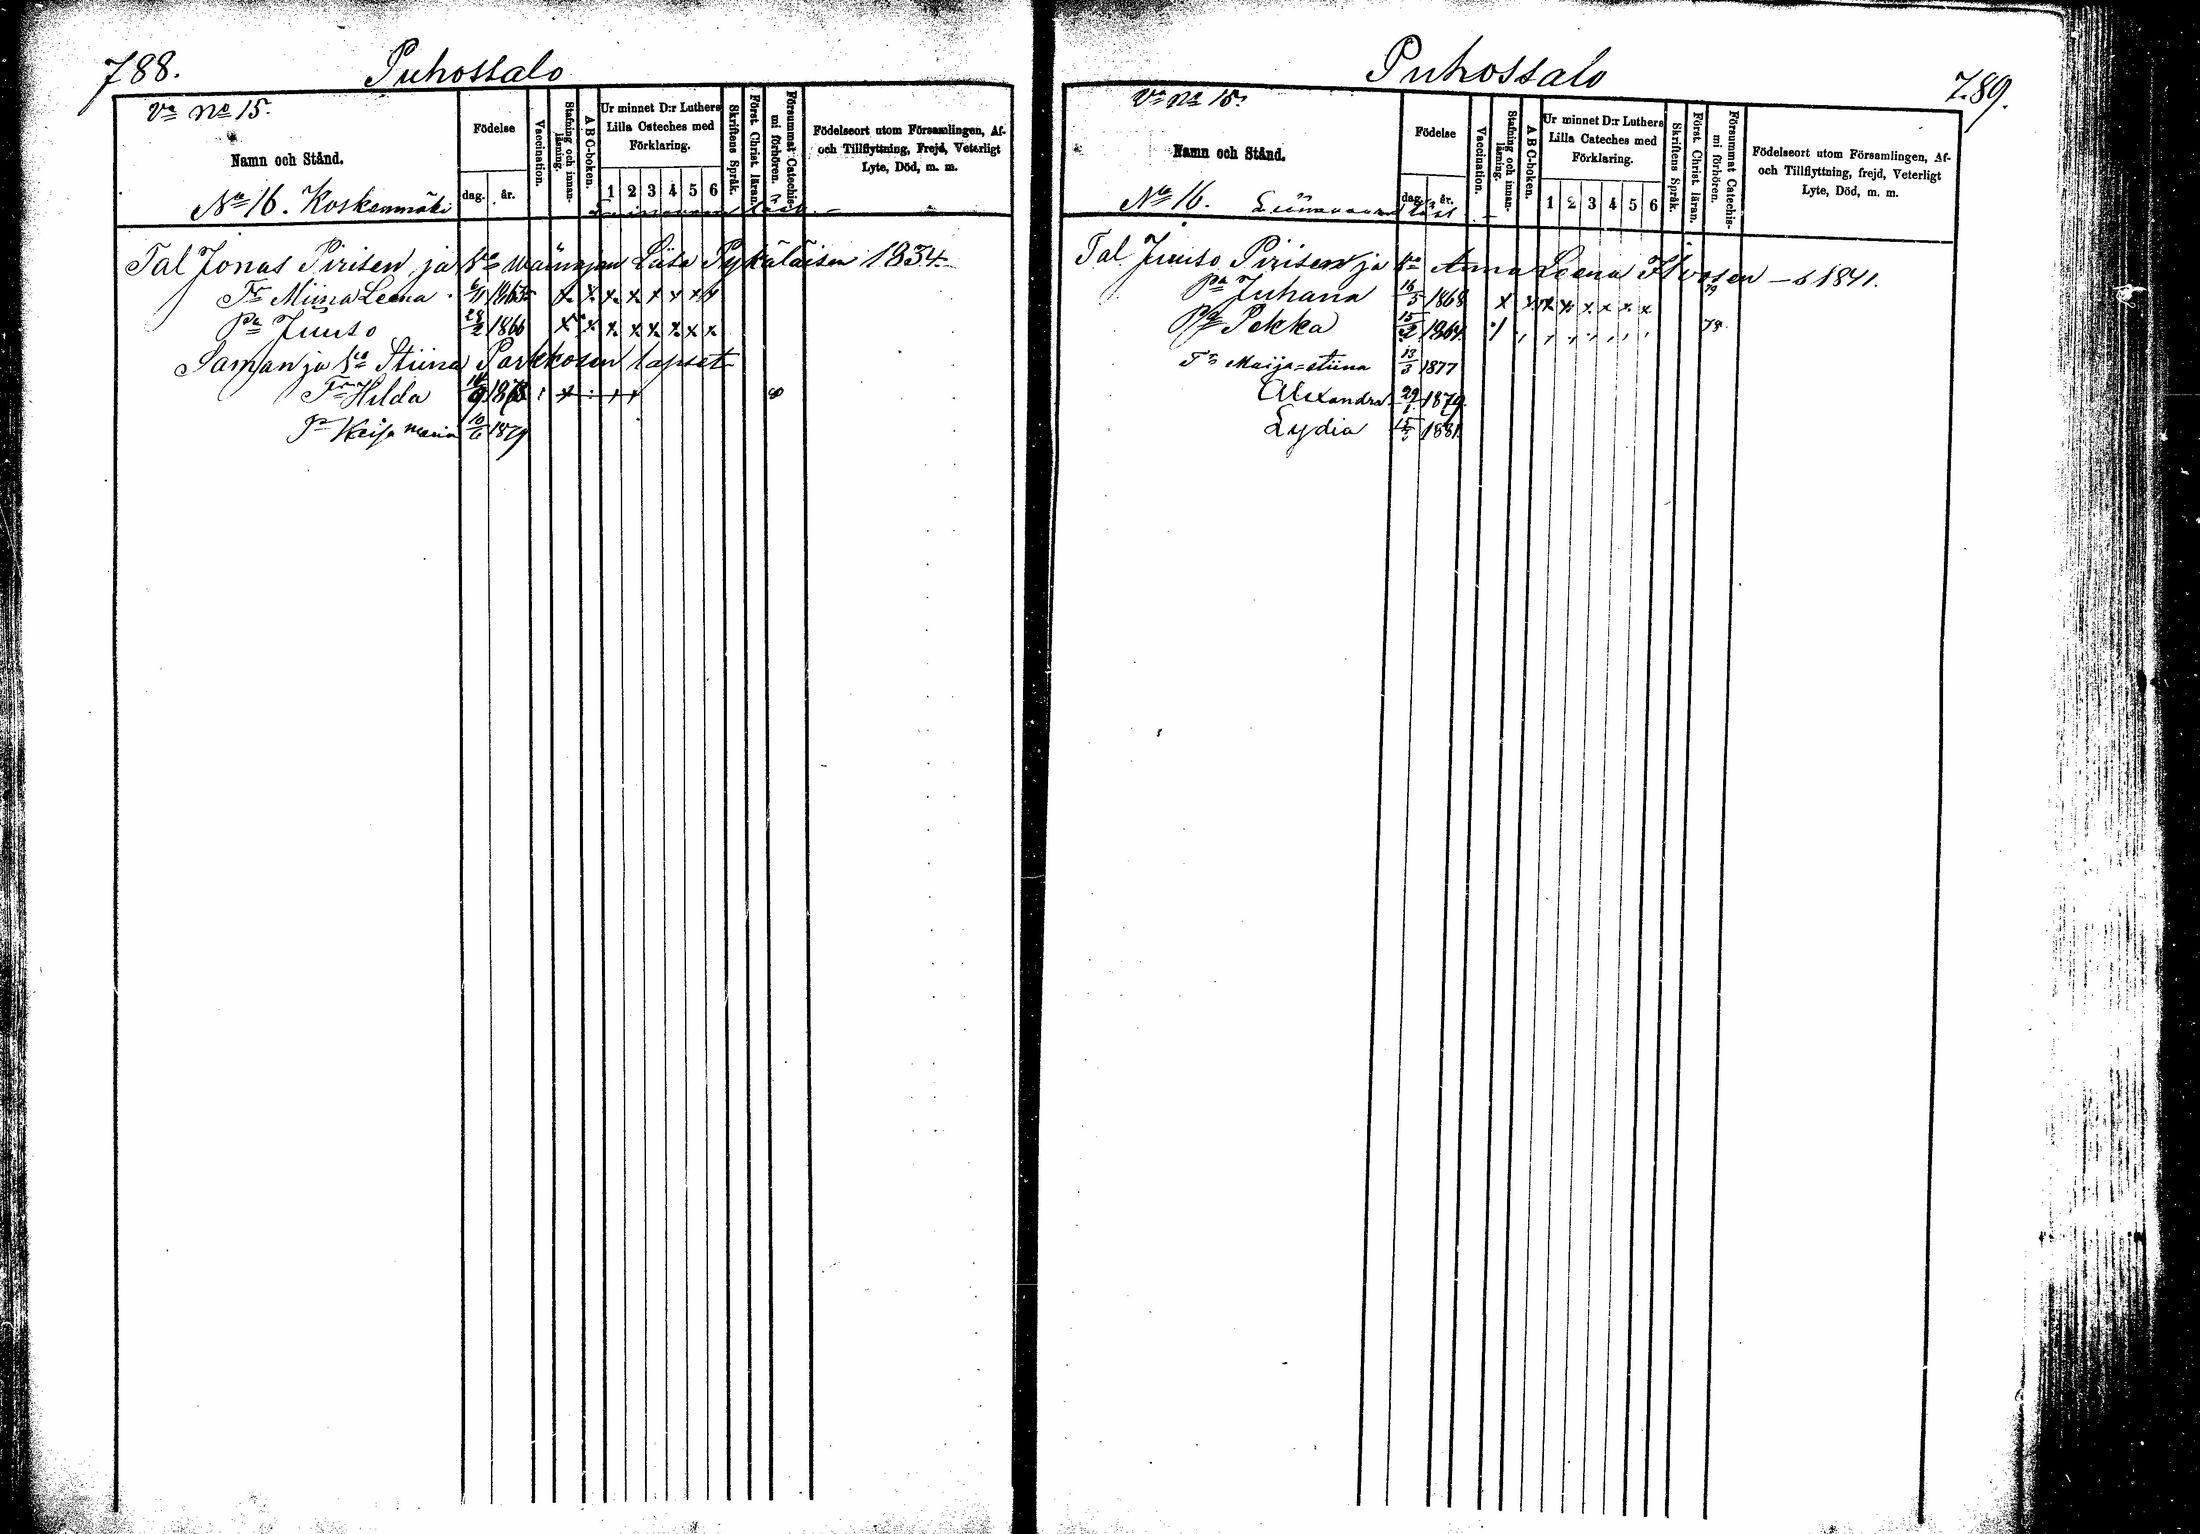 788.
Puhossalo
Va No 15.
Namn och Stånd.
Födelse
dag.
år.
Vaccination.
Stafning och innan-
läsning.
A B C-boken.
Ur minnet D:r Luthers
Lilla Cateches med
Förklaring.
1 2 3 4 5 6
Skriftens Språk.
Först. Christ. läran.
Försummat Catechis-
mi förhören.
Födelseort utom Församlingen, Af-
och Tillflyttning, Frejd, Veterligt
Lyte, Död, m. m.
No 16. Koskenmäki
Tal Jonas Pirisen ja Va Liisa Pykäläisen 1834
Tr Miina Leena 1863 x x x x x x x x
Pa Juuso 28/2 1866 x x x x x x x x
Saman ja Va Stiina Parkkosen lapset
Tr Hilda 80
Kaisa Maria 10/6 1879
Puhossalo
789.
Va No 15.
Namn och Stånd.
Födelse
dag.
år.
Vaccination.
Stafning och innan-
läsning.
A B C-boken.
Ur minnet D:r Luthers
Lilla Cateches med
Förklaring.
1 2 3 4 5 6
Skriftens Språk.
Först. Christ. läran.
Försummat Catechis-
mi förhören.
Födelseort utom Församlingen, Af-
och Tillflyttning, frejd, Veterligt
Lyte, Död, m. m.
No 16.
Tal Juuso Pirisen ja Va Anna Leena Ikosen 1841.
Pa Juhana 16/5 1868 x x x x x x x x
Pa Pekka 15/2 1864
Tr Maija-Stiina 13/3 1877
Alexandra 29/1 1879
Lydia 1881